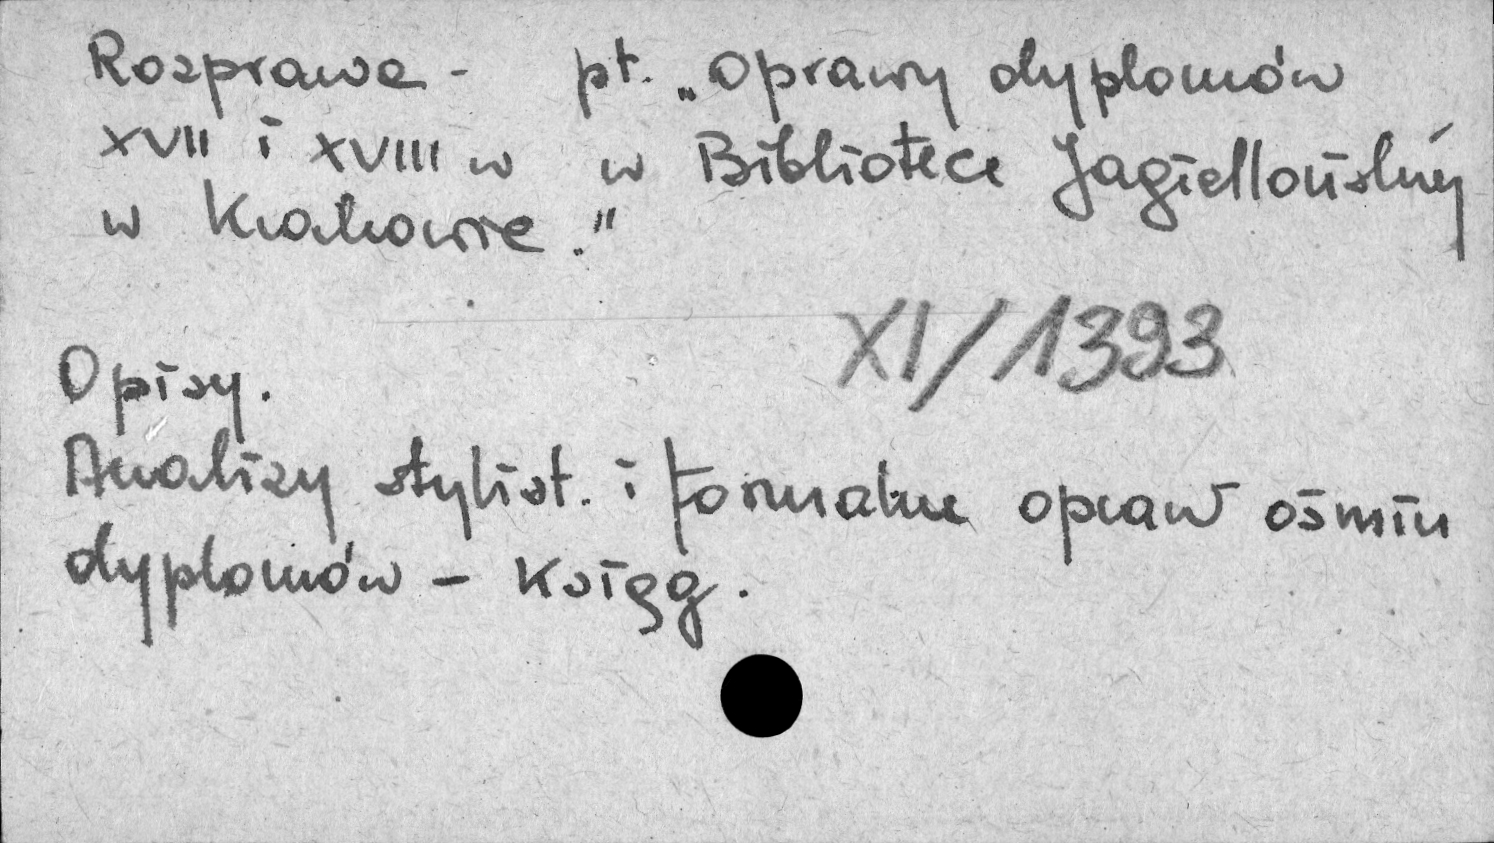 Rozprawa - pt. „Oprawy dyplomów
XVII i XVIII w w Bibliotece Jagiellońskiej
w Krakowie."
XI/1393
Opisy.
Analizy stylist. i formalne opraw ośmiu
dyplomów - Ksiąg.